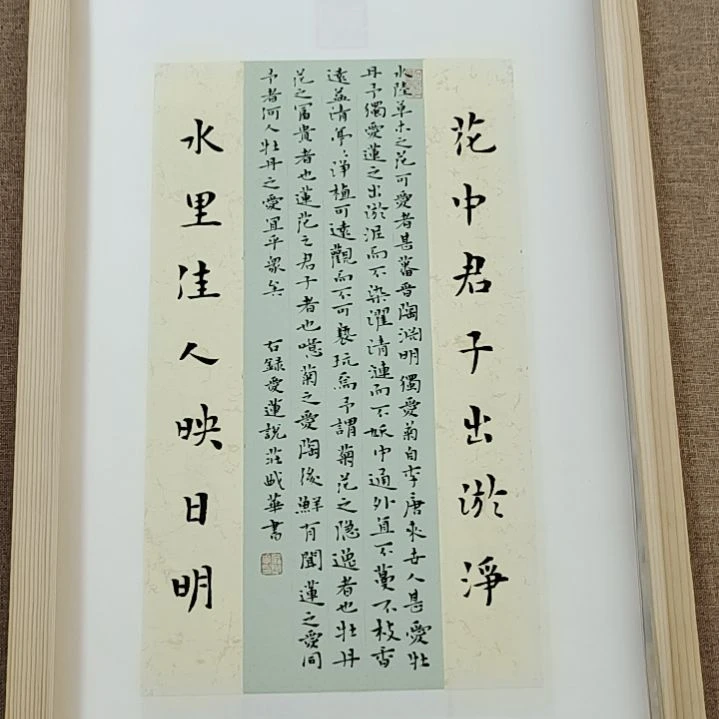 花中君子出淤淨
水陸草木之花可愛者甚蕃晉陶渊明獨愛菊自李唐來世人甚愛牡
丹予獨愛蓮之出淤泥而不染濯清漣而不妖中通外直不蔓不枝香
遠益清亭〻淨植可遠觀而不可褻玩焉予謂菊花之隐逸者也牡丹
花之富貴者也蓮花之君子者也噫菊之愛陶後鮮有聞蓮之愛同
予者何人牡丹之愛宜乎眾矣
右錄愛蓮説莊華書
水里佳人映日明